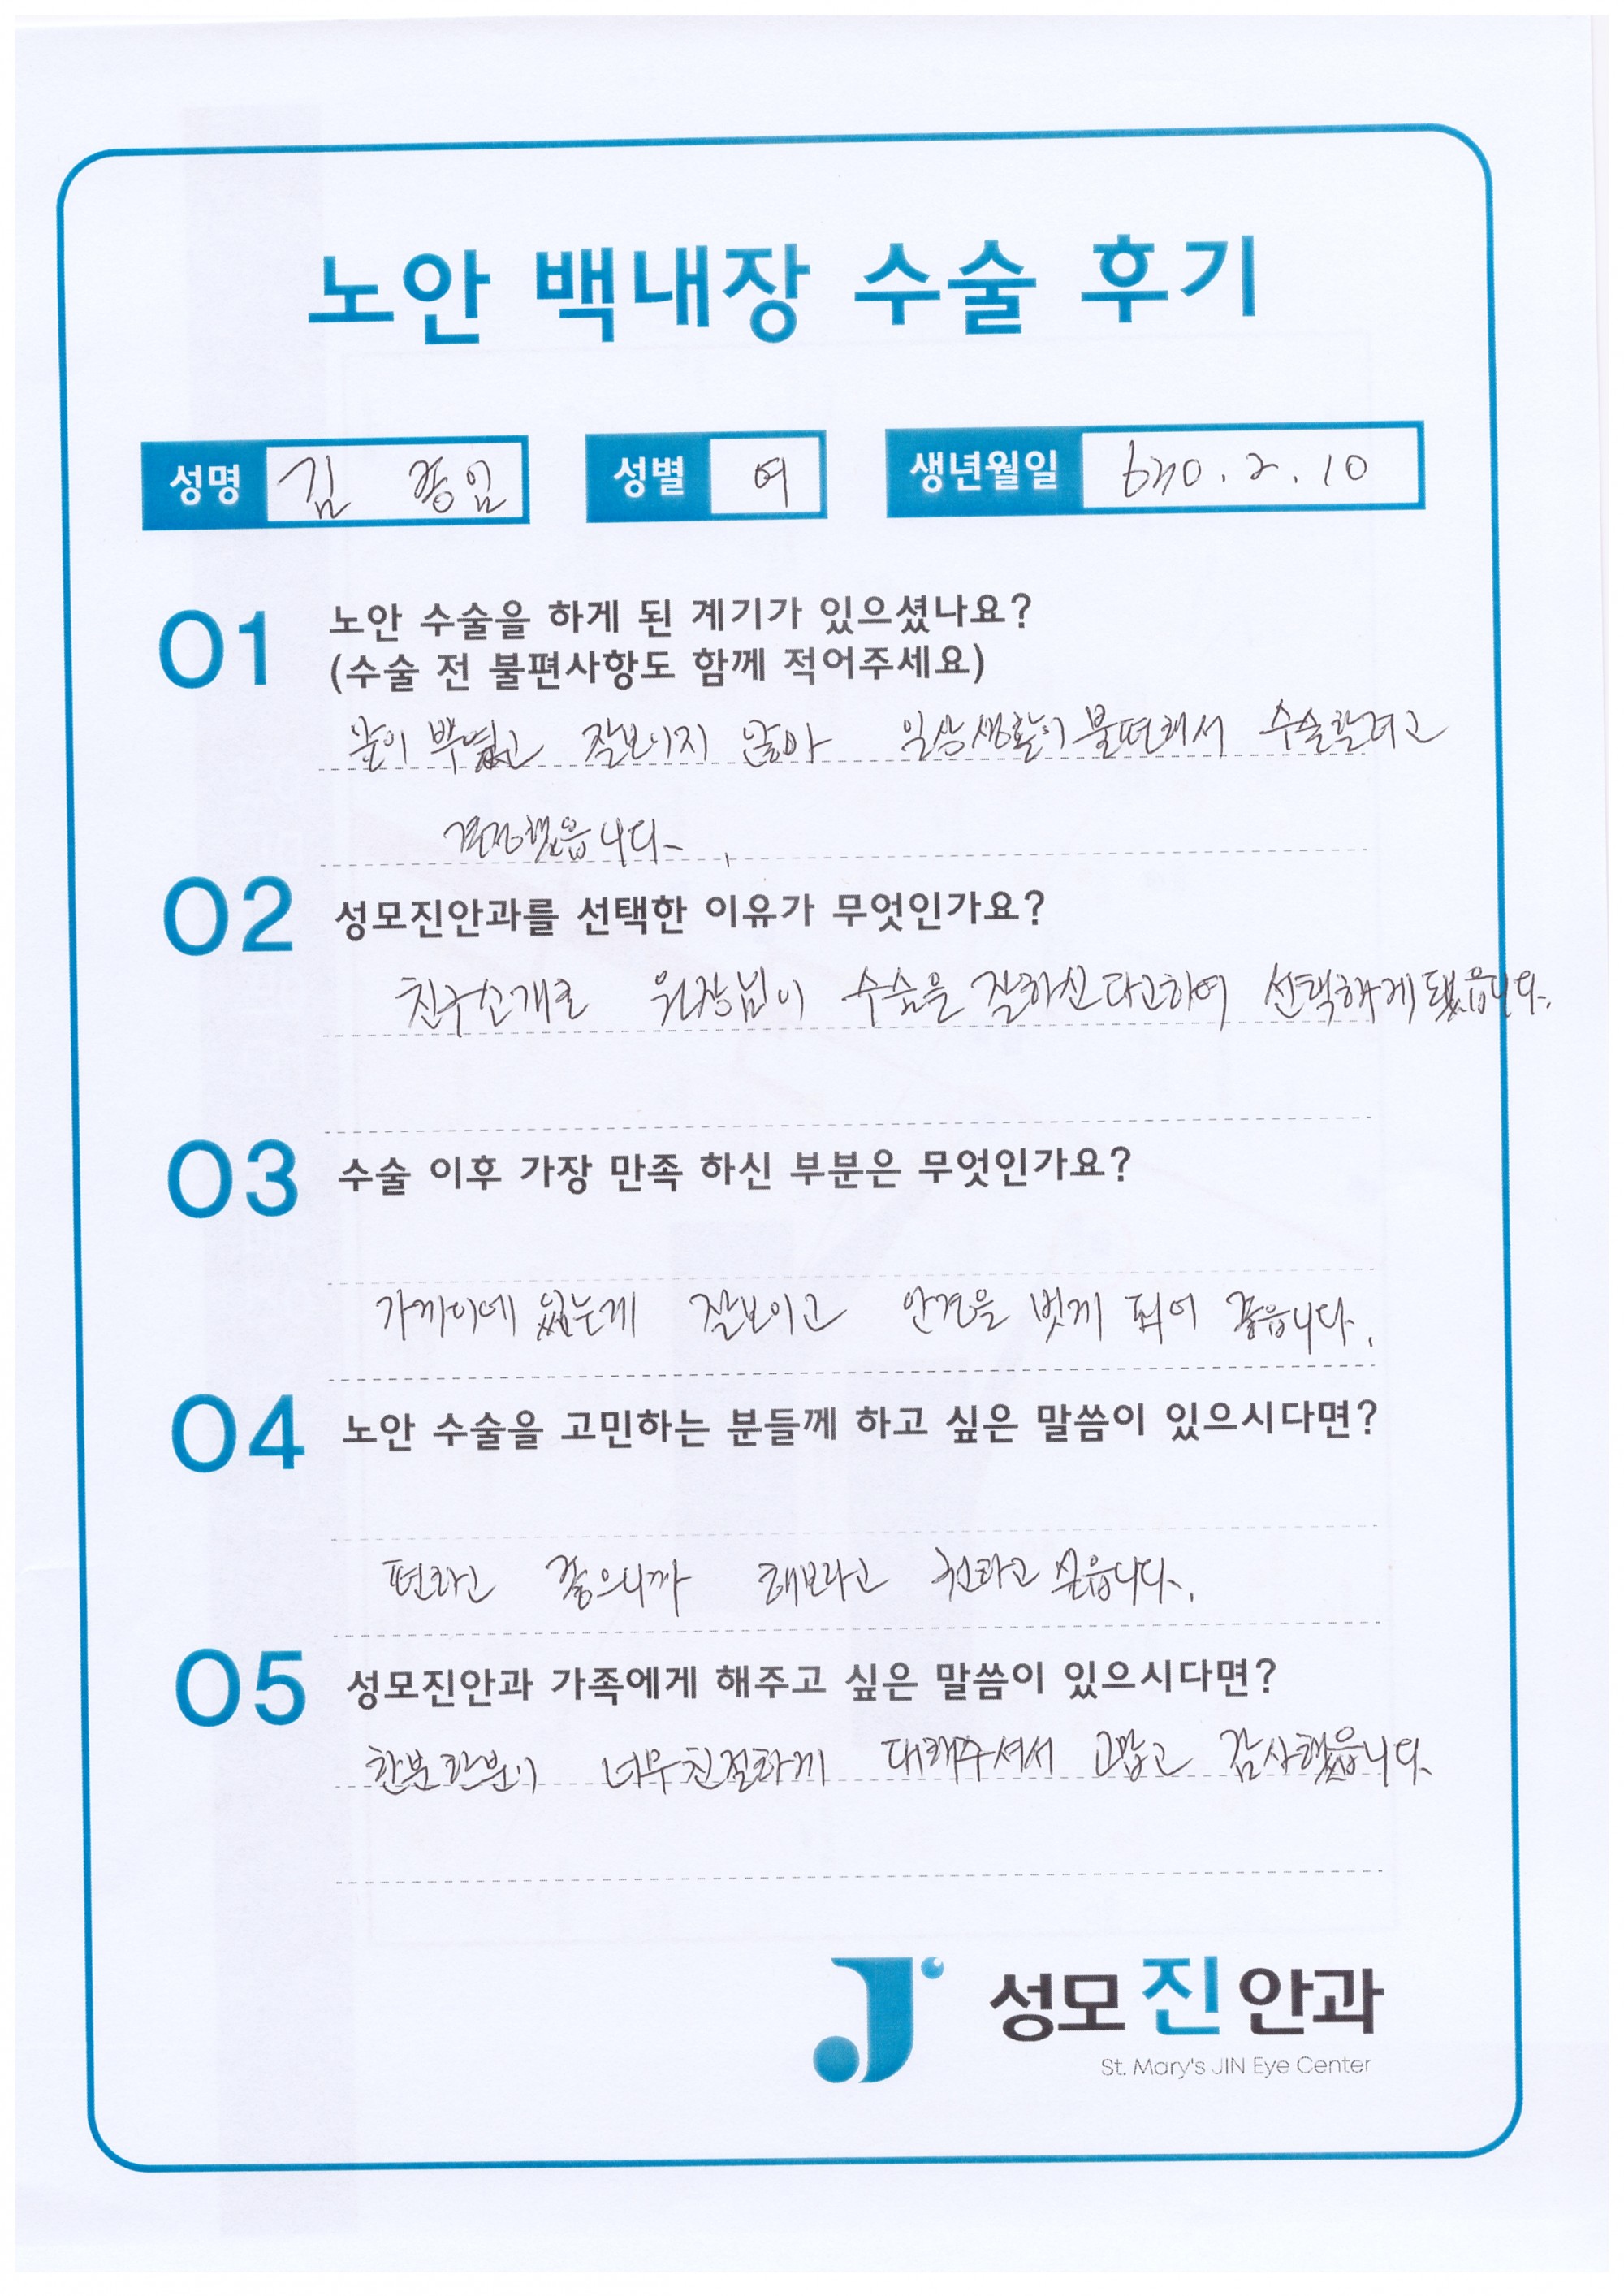 노안 백내장 수술 후기
성명 김 종임 성별 여 생년월일 .2.10
01 노안 수술을 하게 된 계기가 있으셨나요?
(수술 전 불편사항도 함께 적어주세요)
앞이 뿌옇고 잘보이지 않아 일상생활이 불편해서 수술할려고
결정했읍니다.
02 성모진안과를 선택한 이유가 무엇인가요?
친구소개로 원장님이 수술을 잘하신다고하여 선택하게됐읍니다.
03 수술 이후 가장 만족 하신 부분은 무엇인가요?
가까이에 있는게 잘보이고 안경을 벗게 되어 좋읍니다.
04 노안 수술을 고민하는 분들께 하고 싶은 말씀이 있으시다면?
편하고 좋으니까 해보라고 권하고 싶읍니다.
05 성모진안과 가족에게 해주고 싶은 말씀이 있으시다면?
한분한분이 너무친절하게 대해주셔서 고맙고 감사했읍니다.
성모진안과
St. Mary's JIN Eye Center